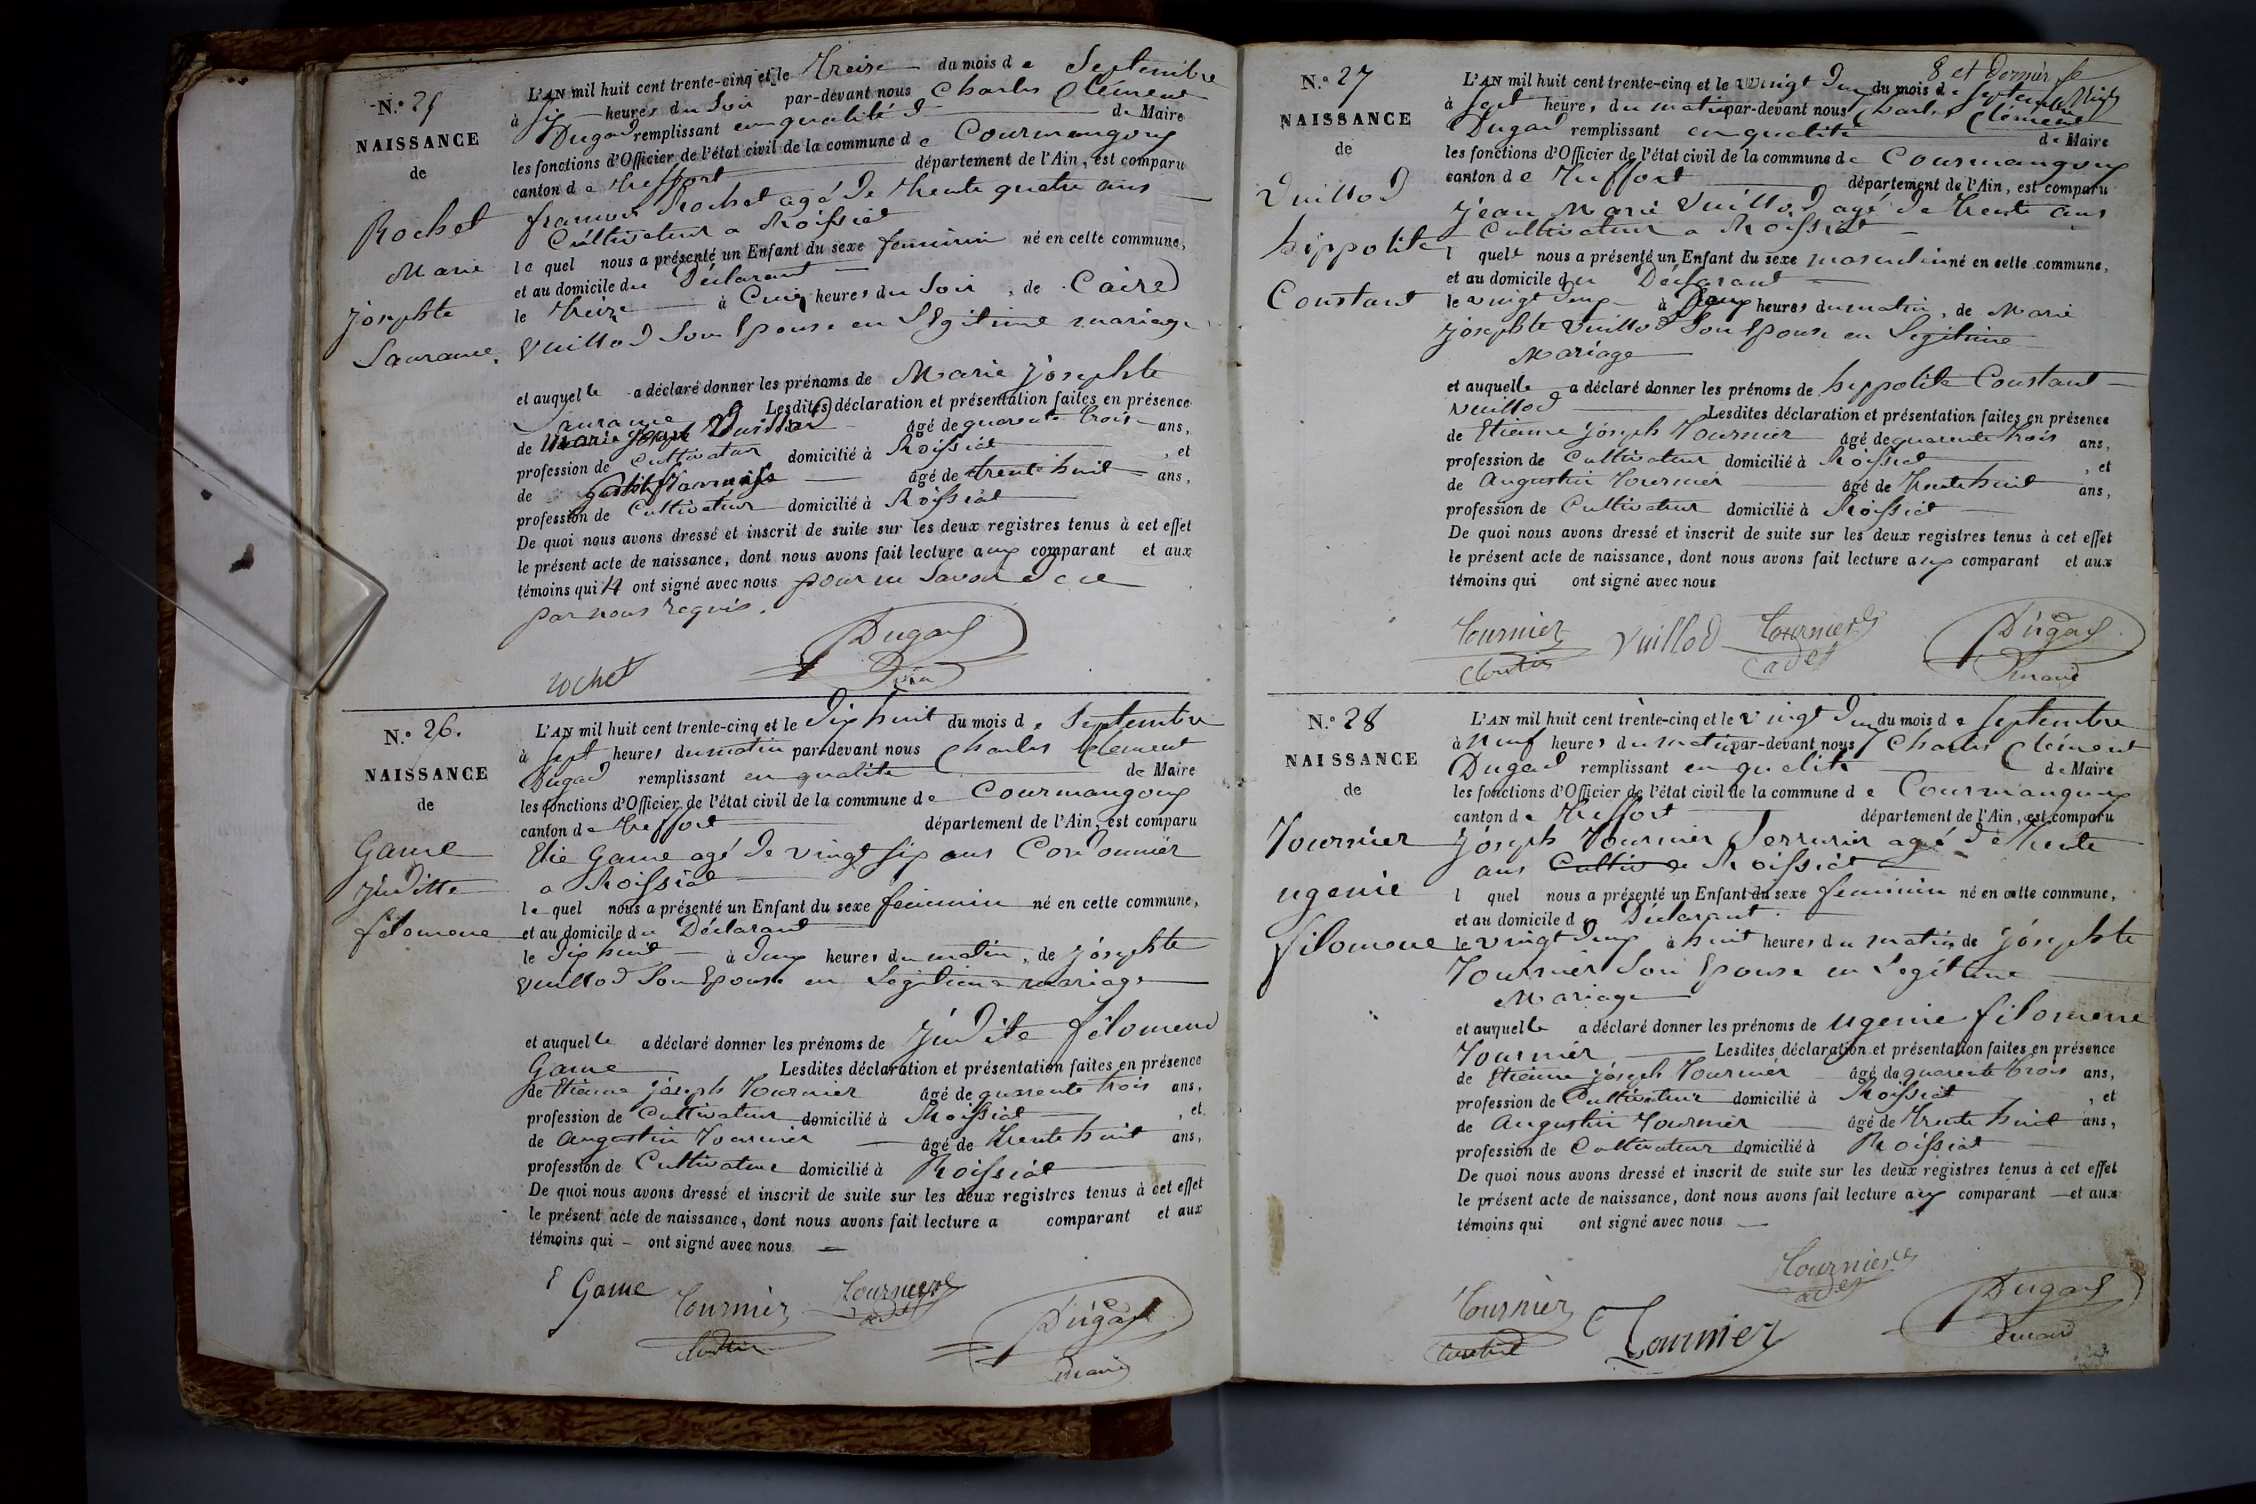 N.° 25
NAISSANCE
de
Rochet
Marie
josephte
Laurance.
L'AN mil huit cent trente-cinq et le Treize du mois de Septembre
à six heures du Soir par-devant nous Charles Clément
Dugad remplissant en qualité d de Maire
les fonctions d'Officier de l'état civil de la commune de Courmangoux
canton de Treffort département de l'Ain, est comparu
francois Rochet agé de trente quatre ans
Cultivateur a Roissiat
le quel nous a présenté un Enfant du sexe feminin né en cette commune,
et au domicile du Déclarant
le treize à Cinq heures du Soir, de Caire
Vuillod Son Epouse en Légitime mariage
et auquelle a déclaré donner les prénoms de Marie josephte
Laurance Lesdites déclaration et présentation faites en présence
de Marie joseph Vuillod âgé de quarente trois ans,
profession de Cultivateur domicilié à Roissiat, et
de âgé de trente huit ans,
profession de Cultivateur domicilié à Roissiat
De quoi nous avons dressé et inscrit de suite sur les deux registres tenus à cet effet
le présent acte de naissance, dont nous avons fait lecture aux comparant et aux
témoins qui ont signé avec nous pour ne Savoir de ce
par nous requis.
rochet Dugad
N.° 26.
NAISSANCE
de
Game
juditte
filomene
L'AN mil huit cent trente-cinq et le dix huit du mois de Septembre
à sept heures du matin par-devant nous Charles Clément
Dugad remplissant en qualité de Maire
les fonctions d'Officier de l'état civil de la commune de Courmangoux
canton de Treffort département de l'Ain, est comparu
Elie Game agé de vingt six ans Cordonnier
a Roissiat
le quel nous a présenté un Enfant du sexe feminin né en cette commune,
et au domicile du Déclarant
le dix huit à deux heures du matin, de josephte
Vuillod Son Epouse en Légitime mariage
et auquelle a déclaré donner les prénoms de judite filomene
Game Lesdites déclaration et présentation faites en présence
de Etienne joseph Tournier âgé de quarente trois ans,
profession de Cultivateur domicilié à Roissiat, et
de augustin Tournier âgé de trente huit ans,
profession de Cultivateur domicilié à Roissiat
De quoi nous avons dressé et inscrit de suite sur les deux registres tenus à cet effet
le présent acte de naissance, dont nous avons fait lecture a comparant et aux
témoins qui ont signé avec nous
E Game Tournier Tournier cadet Dugad
8 et dernier
N.° 27
NAISSANCE
de
Vuillod
hippolite
Constant
L'AN mil huit cent trente-cinq et le vingt deux du mois de Septembre
à sept heures du matin par-devant nous Charles Clément
Dugad remplissant en qualité de Maire
les fonctions d'Officier de l'état civil de la commune de Courmangoux
canton de Treffort département de l'Ain, est comparu
jean Marie Vuillod agé de trente ans
Cultivateur a Roissiat
l quel nous a présenté un Enfant du sexe masculin né en cette commune,
et au domicile du Déclarant
le vingt deux à heures du matin, de Marie
josephte Vuillod Son Epouse en Legitime
Mariage
et auquelle a déclaré donner les prénoms de hippolite Constant
Vuillod Lesdites déclaration et présentation faites en présence
de Etienne joseph Tournier âgé de quarente trois ans,
profession de Cultivateur domicilié à Roissiat, et
de Augustin Tournier âgé de trente huit ans,
profession de Cultivateur domicilié à Roissiat
De quoi nous avons dressé et inscrit de suite sur les deux registres tenus à cet effet
le présent acte de naissance, dont nous avons fait lecture aux comparant et aux
témoins qui ont signé avec nous
Tournier Vuillod Tournier cadet Dugad
N.° 28
NAISSANCE
de
Tournier
ugenie
filomene
L'AN mil huit cent trente-cinq et le vingt deux du mois de Septembre
à neuf heures du matin par-devant nous Charles Clément
Dugad remplissant en qualité de Maire
les fonctions d'Officier de l'état civil de la commune de Courmangoux
canton de Treffort département de l'Ain, est comparu
joseph Tournier Serrurier agé de trente
ans Cultiv a Roissiat
l quel nous a présenté un Enfant du sexe feminin né en cette commune,
et au domicile du Déclarant
le vingt deux à huit heures du matin, de josephte
Tournier Son Epouse en Legitime
Mariage
et auquelle a déclaré donner les prénoms de ugenie filomene
Tournier Lesdites déclaration et présentation faites en présence
de Etienne joseph Tournier âgé de quarente trois ans,
profession de Cultivateur domicilié à Roissiat, et
de Augustin Tournier âgé de trente huit ans,
profession de Cultivateur domicilié à Roissiat
De quoi nous avons dressé et inscrit de suite sur les deux registres tenus à cet effet
le présent acte de naissance, dont nous avons fait lecture aux comparant et aux
témoins qui ont signé avec nous
Tournier Tournier Tournier cadet Dugad